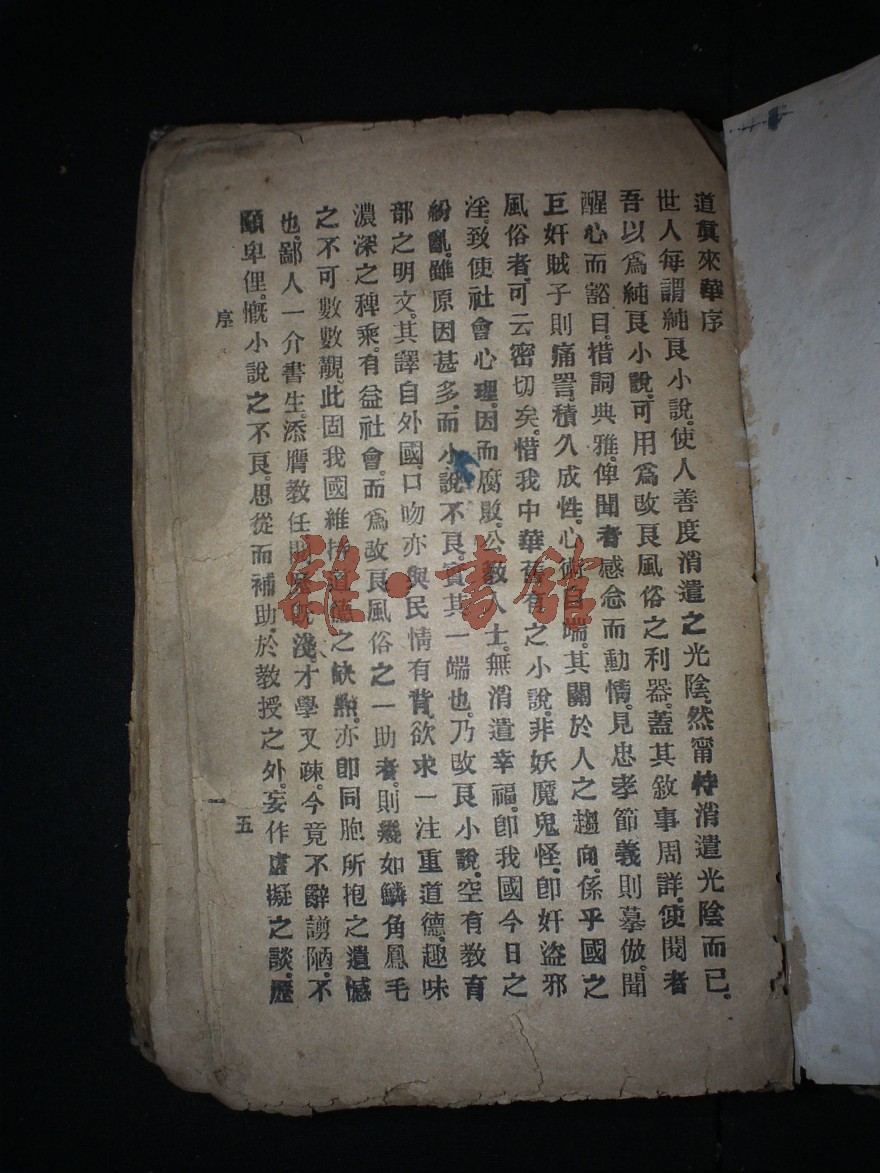 道眞來華序
世人每謂純良小說。使人善度消遣之光陰。然甯特消遣光陰而已。
吾以爲純良小說。可用爲改良風俗之利器。蓋其敘事周詳。使閱者
醒心而豁目。措詞典雅。俾聞者感念而動情。見忠孝節義則摹倣。聞
巨奸賊子則痛詈。積久成性。心術自端。其關於人之趨向。係乎國之
風俗者。可云密切矣。惜我中華舊有之小說。非妖魔鬼怪。卽奸盜邪
淫。致使社會心理。因而腐敗。公教人士。無消遣幸福。卽我國今日之
紛亂。雖原因甚多。而小說不良。實其一端也。乃改良小說。空有教育
部之明文。其譯自外國。口吻亦與民情有背。欲求一注重道德。趣味
濃深之稗乘。有益社會。而爲改良風俗之一助者。則幾如鱗角鳳毛
之不可數數覯。此固我國維持道德之缺點。亦卽同胞所抱之遺憾
也。鄙人一介書生。添膺教任。閱 旣淺。才學又疎。今竟不辭謭陋。不
顧卑俚。慨小說之不良。思從而補助。於教授之外。妄作虛擬之談。歷
序
一
五
雜·書館